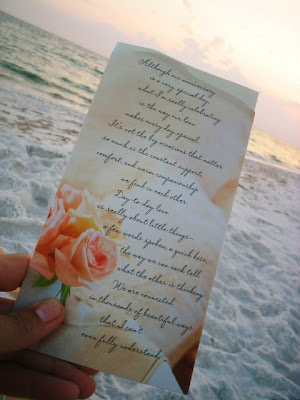 Although our anniversary
is a very special day
what I'm really celebrating
is the way our love
makes every day special.
It's not the big occasions that matter
so much as the constant support,
comfort and warm companionship
we find in each other.
Day-to-day love
is really about little things-
a few words spoken, a quick kiss,
the way we can each tell
what the other is thinking.
We are connected
in thousands of beautiful ways
that I can't
even fully understand